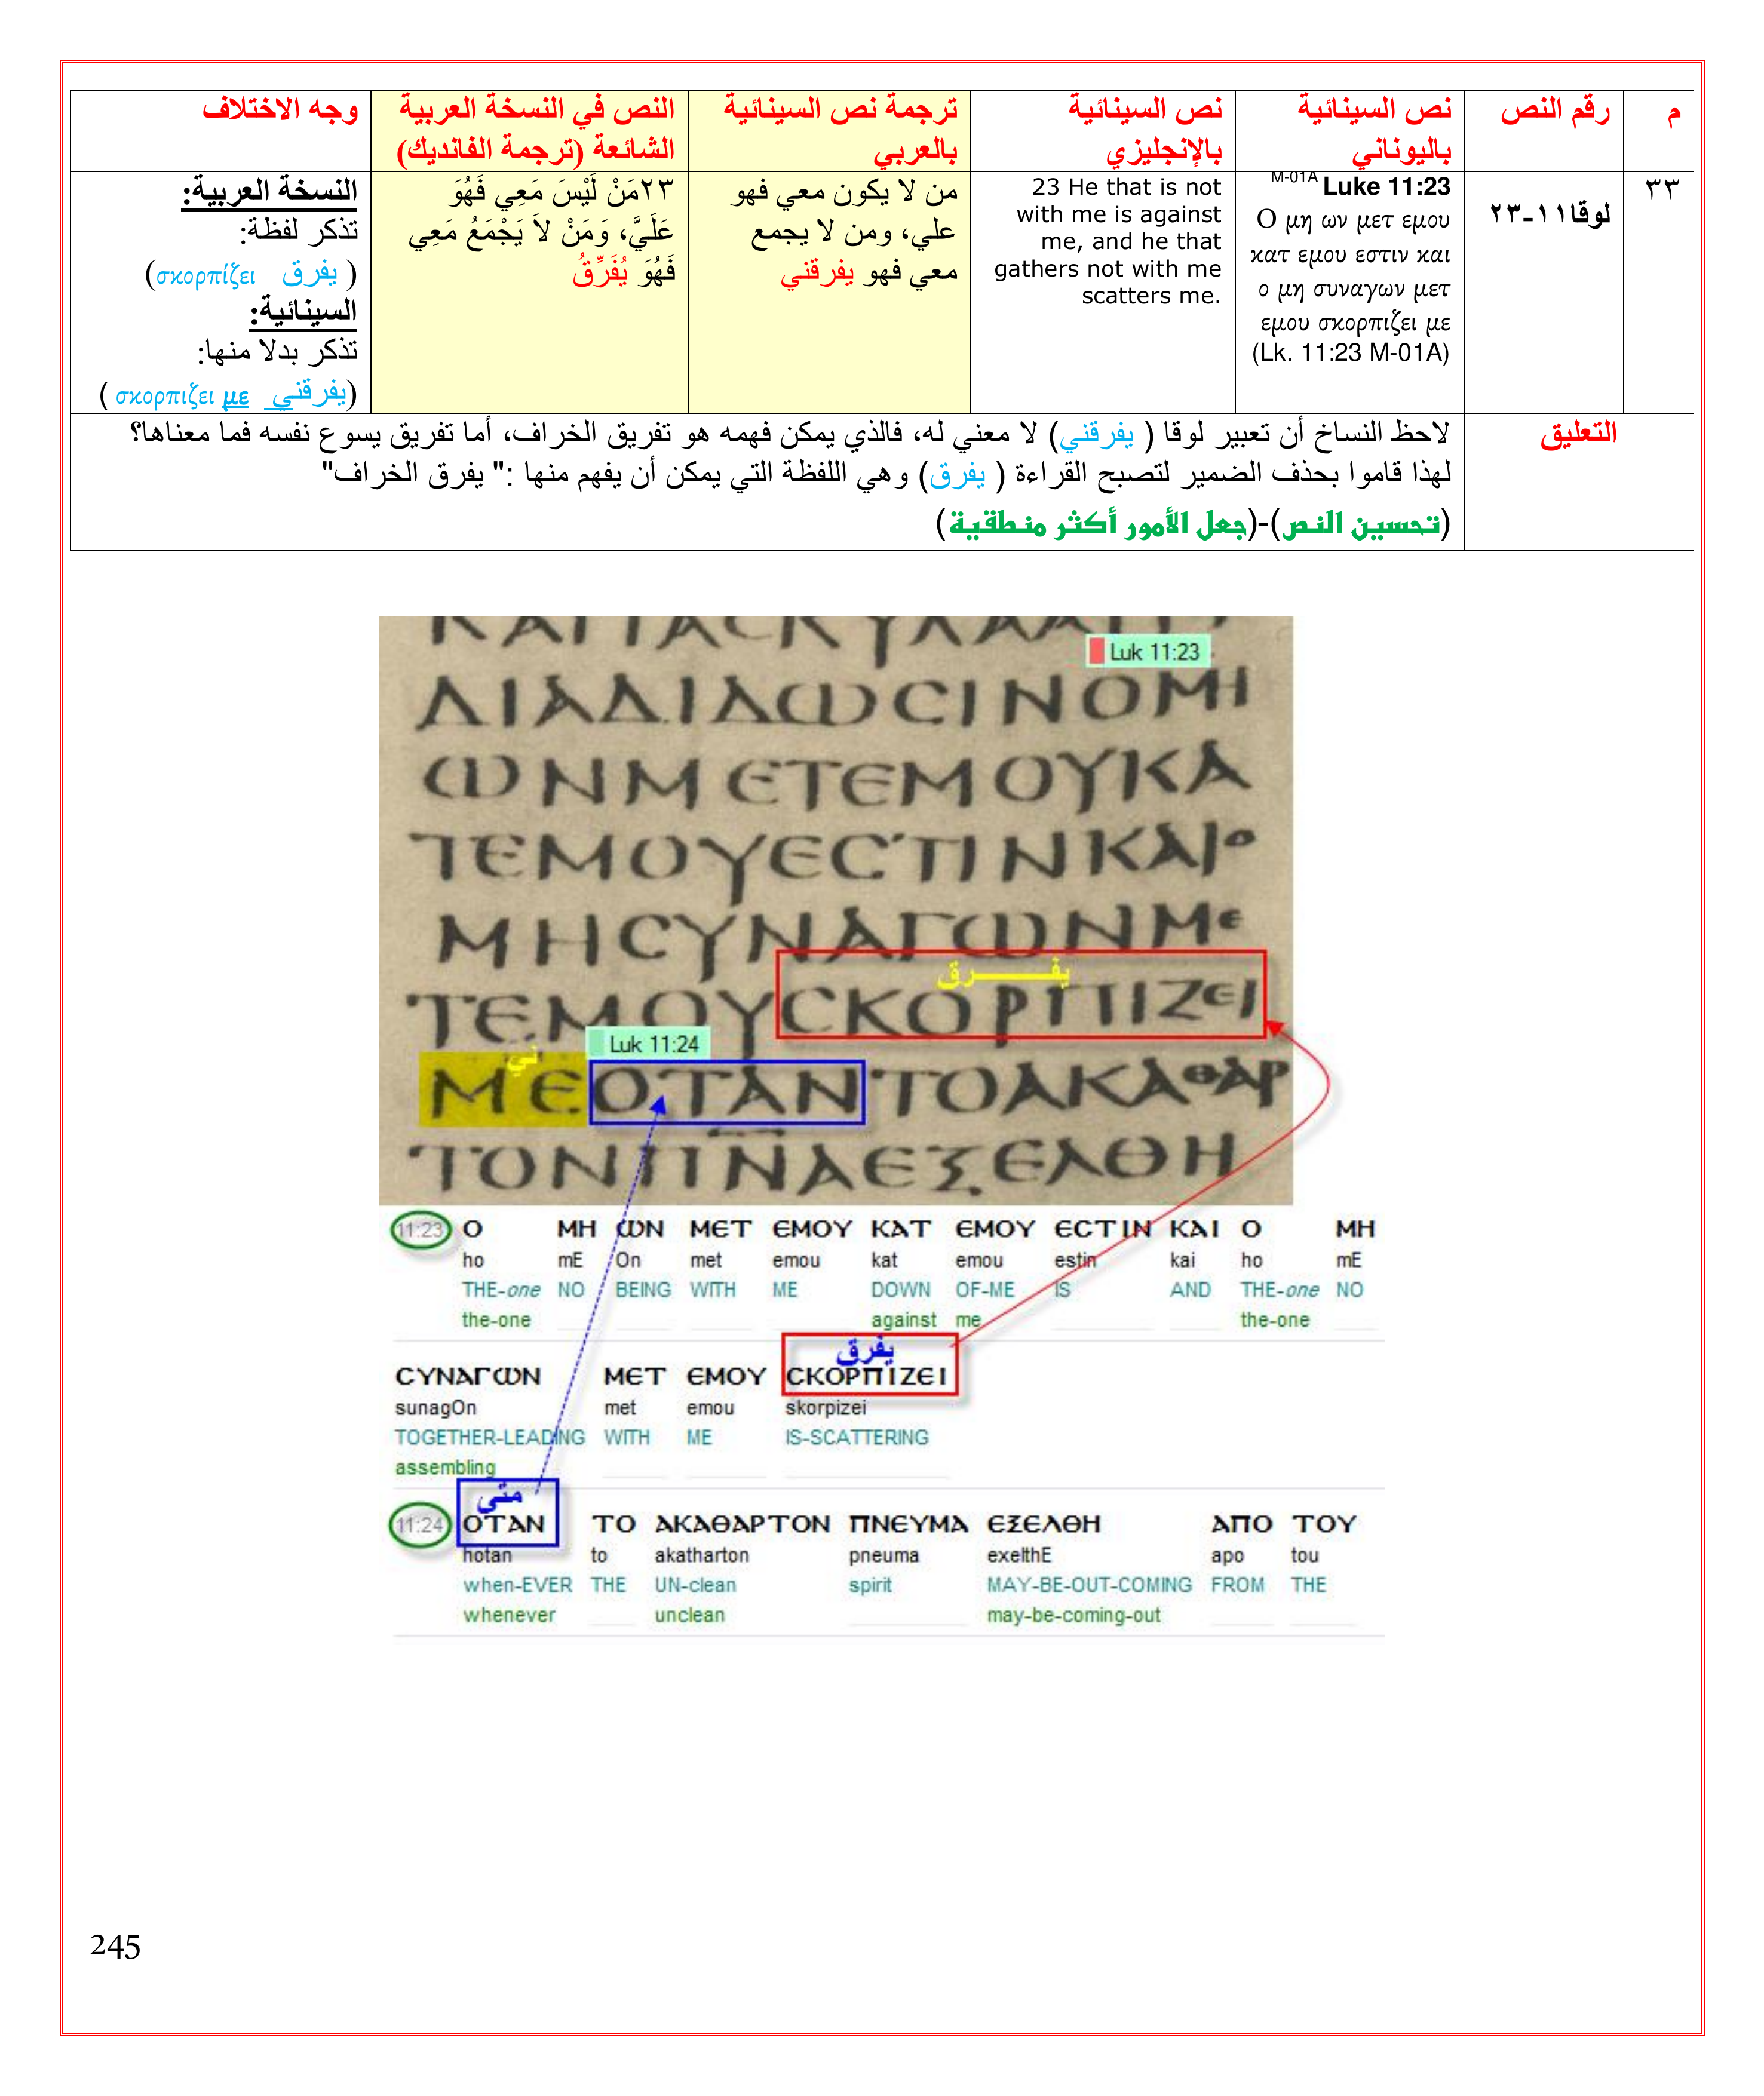 م
رقم النص
نص السينائية
باليوناني
نص السينائية
بالإنجليزي
ترجمة نص السينائية
بالعربي
النص في النسخة العربية
الشائعة (ترجمة الفانديك)
وجه الاختلاف
٣٣
لوقا١١-٢٣
M-01A Luke 11:23
Ο μη ων μετ εμου
κατ εμου εστιν και
ο μη συναγων μετ
εμου σκορπιζει με
(Lk. 11:23 M-01A)
23 He that is not
with me is against
me, and he that
gathers not with me
scatters me.
من لا يكون معي فهو
علي، ومن لا يجمع
معي فهو يفرقني
٢٣مَنْ لَيْسَ مَعِي فَهُوَ
عَلَيَّ، وَمَنْ لاَ يَجْمَعُ مَعِي
فَهُوَ يُفَرِّقُ
النسخة العربية:
تذكر لفظة:
( يفرق σκορπίζει)
السينائية:
تذكر بدلا منها:
(يفرقني σκορπιζει με )
التعليق
لاحظ النساخ أن تعبير لوقا ( يفرقني) لا معني له، فالذي يمكن فهمه هو تفريق الخراف، أما تفريق يسوع نفسه فما معناها؟
لهذا قاموا بحذف الضمير لتصبح القراءة ( يفرق) وهي اللفظة التي يمكن أن يفهم منها :" يفرق الخراف"
(تحسين النص)-(جعل الأمور أكثر منطقية)
Luk 11:23
ΔΙΑΔΙΔΩCΙΝΟΜΗ
ΩΝΜΕΤΕΜΟΥΚΑ
ΤΕΜΟΥΕCΤΙΝΚΑΙΟ
ΜΗCΥΝΑΓΩΝΜΕ
يفرق
ΤΕΜΟΥCΚΟΡΠΙΖΕΙ
Luk 11:24
ني
ΜΕΟΤΑΝΤΟΑΚΑΘΑΡ
ΤΟΝΠΝΑΕΞΕΛΘΗ
11:23 Ο ΜΗ ΩΝ ΜΕΤ ΕΜΟΥ ΚΑΤ ΕΜΟΥ ΕCΤΙΝ ΚΑΙ Ο ΜΗ
ho mE On met emou kat emou estin kai ho mE
THE-one NO BEING WITH ME DOWN OF-ME IS AND THE-one NO
the-one against me the-one
يفرق
CΥΝΑΓΩΝ ΜΕΤ ΕΜΟΥ CΚΟΡΠΙΖΕΙ
sunagOn met emou skorpizei
TOGETHER-LEADING WITH ME IS-SCATTERING
assembling
متى
11:24 ΟΤΑΝ ΤΟ ΑΚΑΘΑΡΤΟΝ ΠΝΕΥΜΑ ΕΞΕΛΘΗ ΑΠΟ ΤΟΥ
hotan to akatharton pneuma exelthE apo tou
when-EVER THE UN-clean spirit MAY-BE-OUT-COMING FROM THE
whenever unclean may-be-coming-out
245